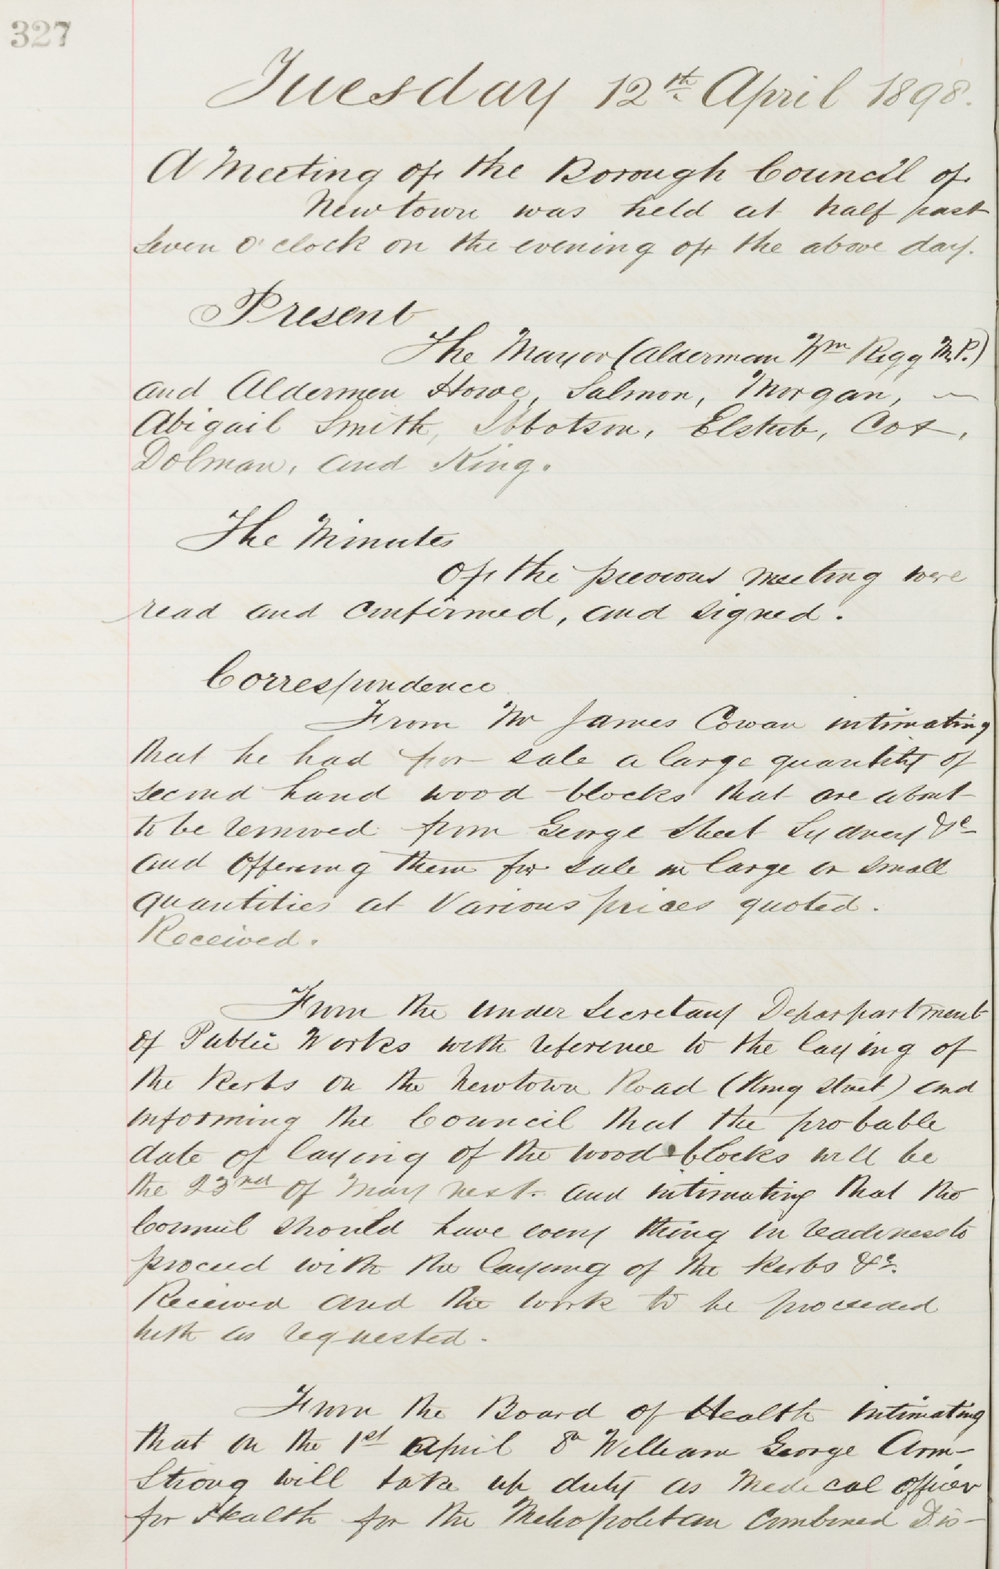 327
Tuesday 12th April 1898.
A Meeting of the Borough Council of
Newtown was held at half past
seven o'clock on the evening of the above day.
Present
The Mayor (Alderman Wm Rigg M.P.)
and Aldermen Howe, Salmon, Morgan, —
Abigail Smith, Ibbotson, Elstub, Cox,
Dolman, and King.
The Minutes
Of the previous meeting were
read and confirmed, and signed.
Correspondence
From Mr James Cowan intimating
that he had for sale a large quantity of
second hand wood blocks that are about
to be removed from George Street Sydney &c
and offering them for sale in large or small
quantities at various prices quoted.
Received.
From the under Secretary Deparpartment
of Public Works with reference to the laying of
the Kerbs on the Newtown Road (King Street) and
informing the Council that the probable
date of laying of the wood blocks will be
the 23rd of May next. and intimating that the
Council should have every thing in readiness to
proceed with the laying of the Kerbs &c.
Received and the work to be proceeded
with as requested.
From the Board of Health intimating
that on the 1st April Dr William George Arm-
strong will take up duty as Medical officer
for Health for the Metropolitan Combined Dis-